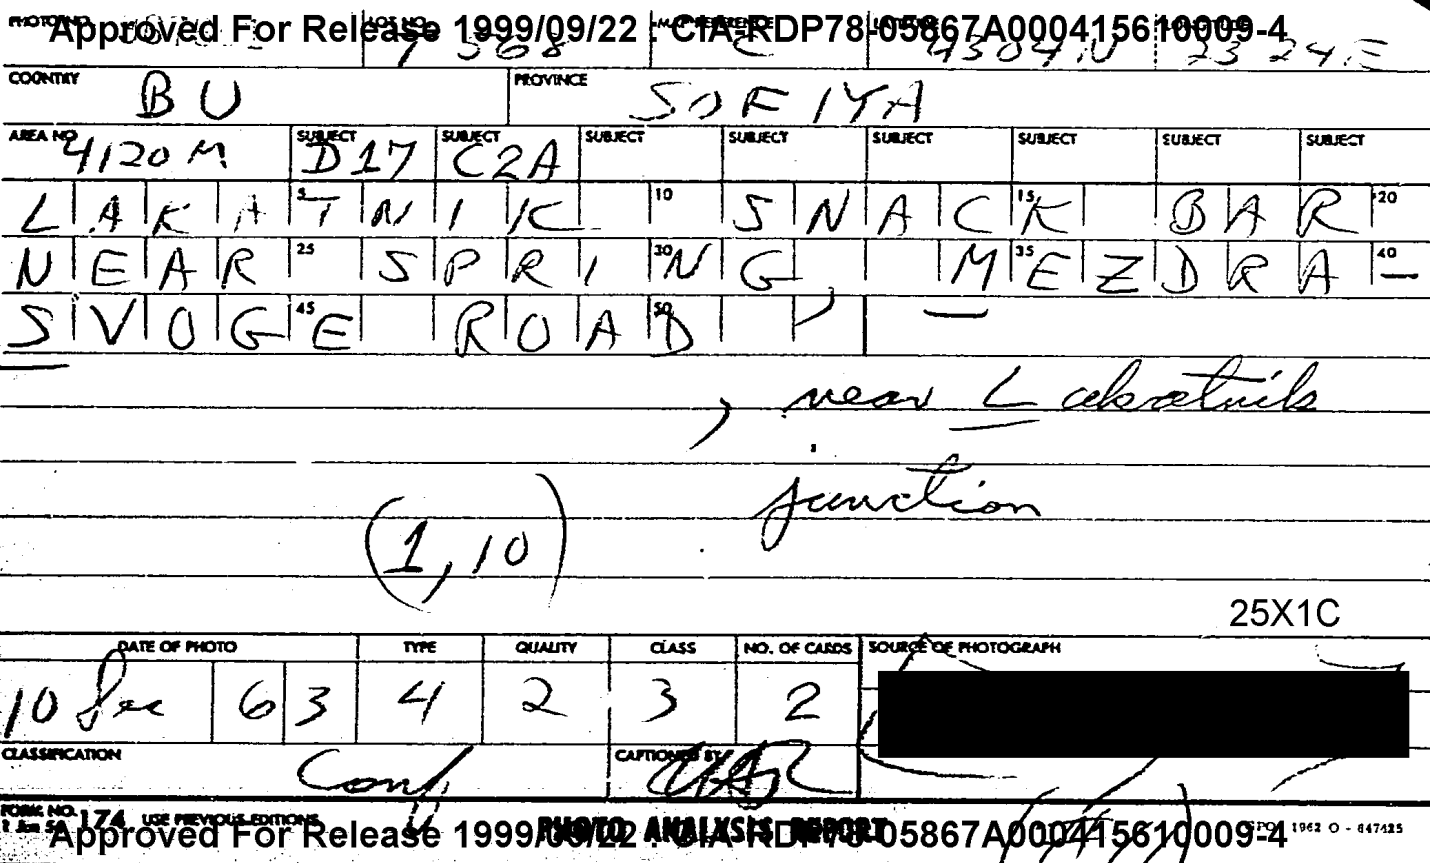 Approved For Release 1999/09/22 : CIA-RDP78-05867A000415610009-4
PHOTO NO. LOT NO. MAP REFERENCE
1568 C 4304N 23 24 E
COUNTRY BU PROVINCE SOFIYA
AREA NO. 4120M SUBJECT D17 SUBJECT C2A SUBJECT SUBJECT SUBJECT SUBJECT SUBJECT SUBJECT
LAKA 5 TNIK 10 SNACK 15 BAR 20
NEAR 25 SPRI 30 NG, MEZ 35 DRA- 40
SVOG 45 E ROAD 50
, near Lakatnik
junction
(1, 10)
25X1C
DATE OF PHOTO TYPE QUALITY CLASS NO. OF CARDS SOURCE OF PHOTOGRAPH
10 Dec 63 4 2 3 2
CLASSIFICATION Conf CAPTIONED BY
FORM NO. 174 USE PREVIOUS EDITIONS. PHOTO ANALYSIS REPORT GPO 1962 O - 647425
Approved For Release 1999/09/22 : CIA-RDP78-05867A000415610009-4